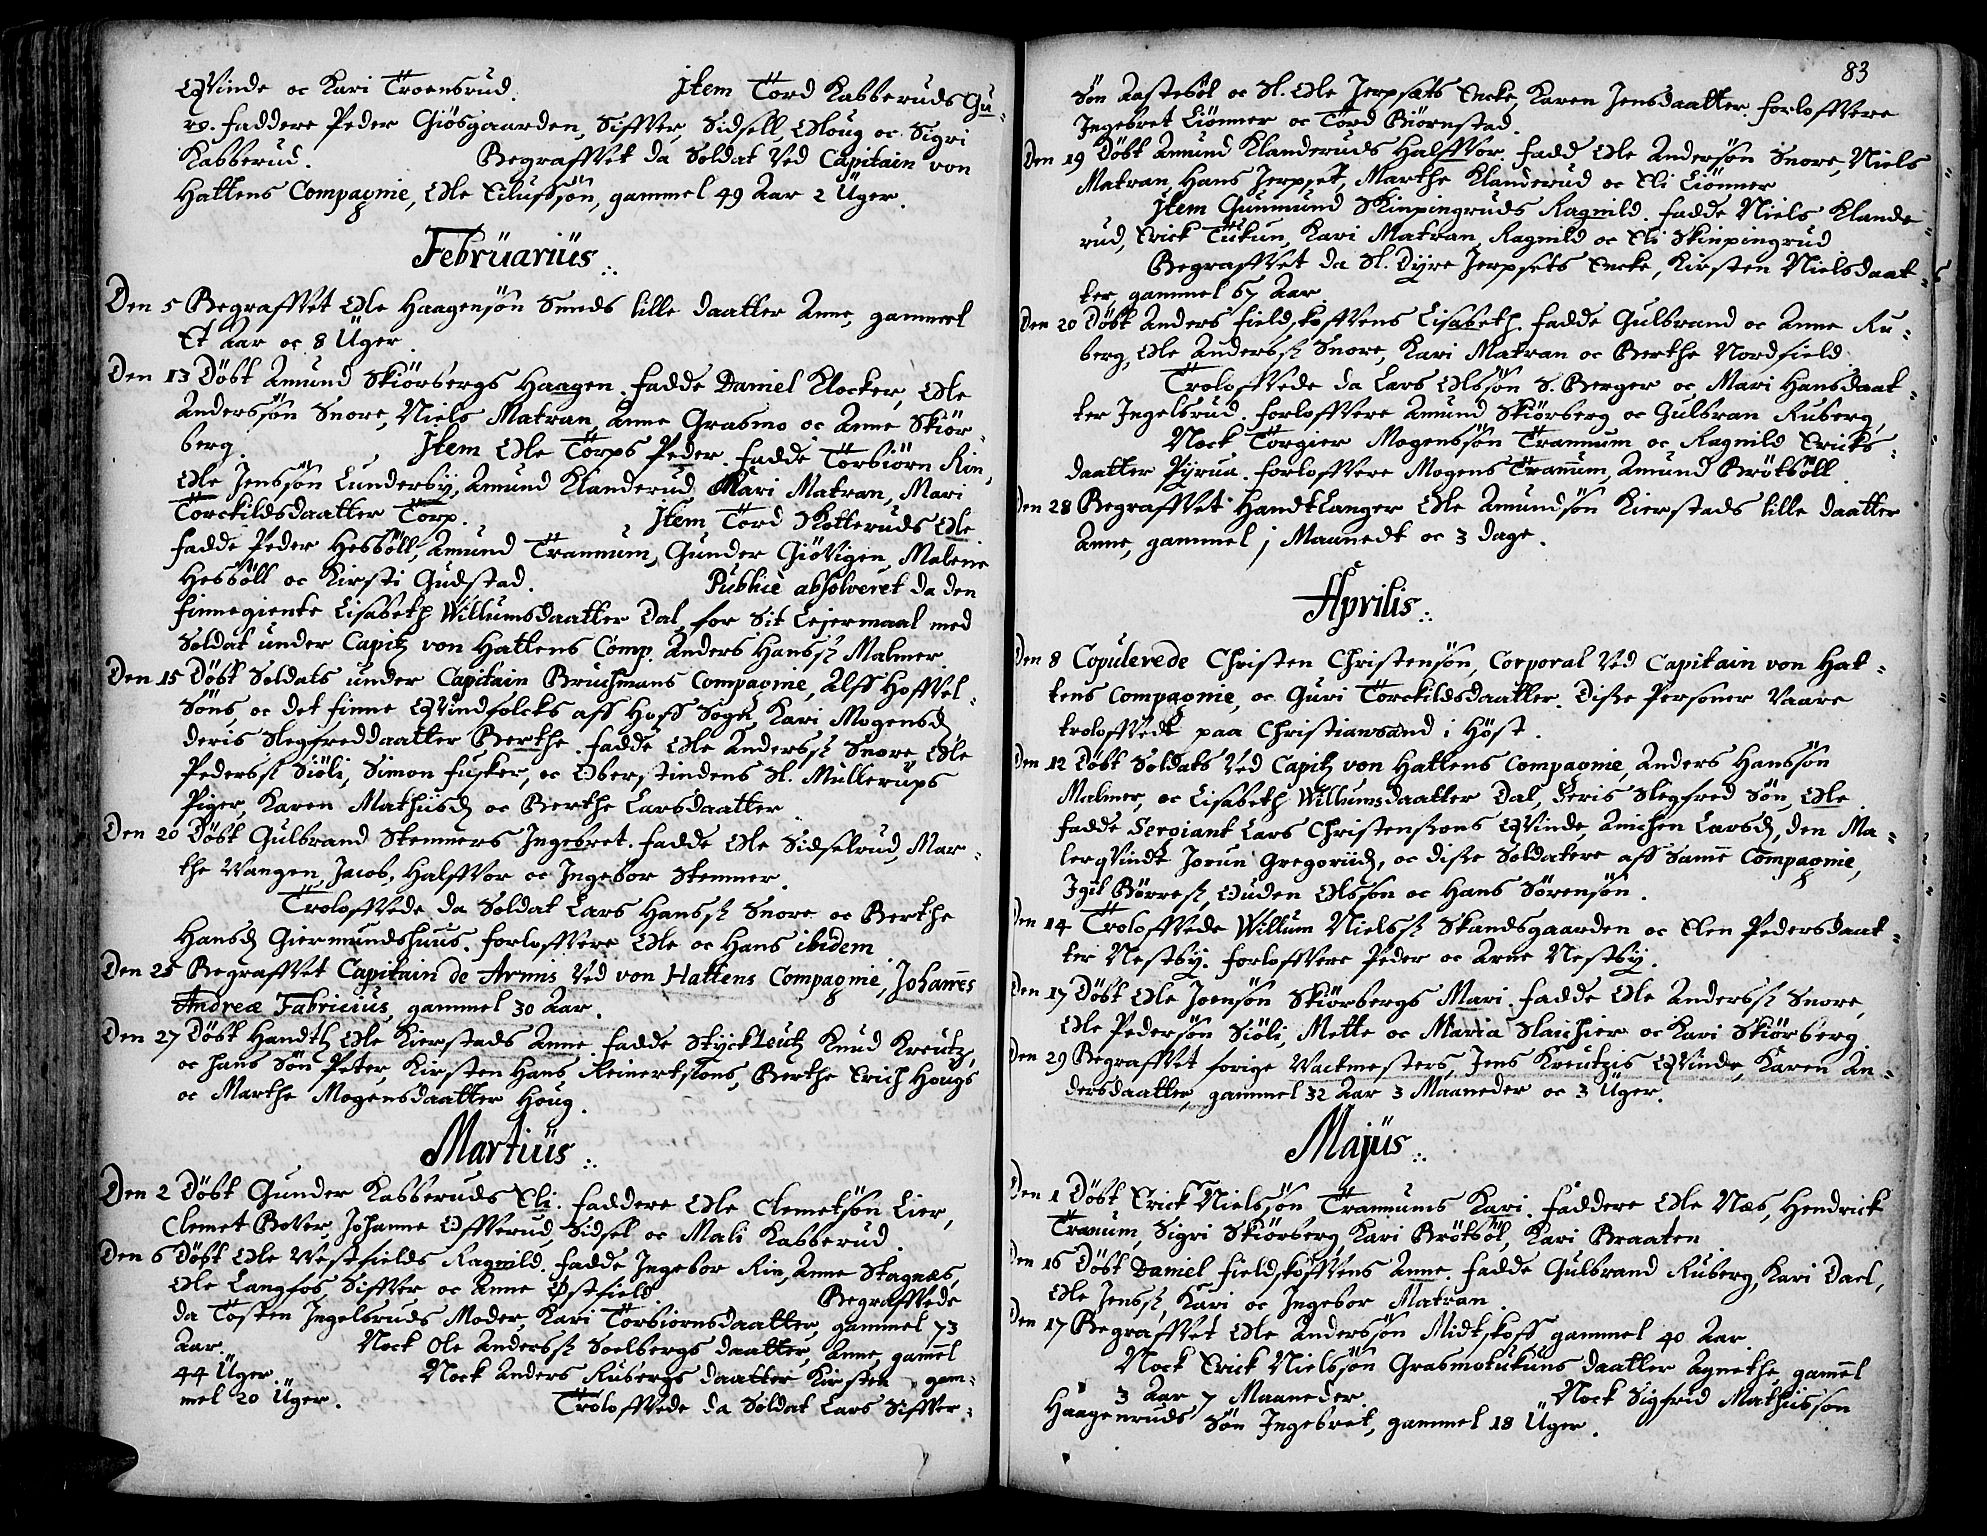 Qvinde oc Kari Troensrud. Jtem Tord Kabberuds Gu-
ro. Faddere Peder Giösgaarden, Siffver, Sidsell, Oloug oc Sigri
Kabberud. Begraffvet da Soldat Ved Capitain von
Hattens Compagnie, Ole Eilufssön, gammel 49 Aar 2 Üger.
Februarius
Den 5 Begraffvet Ole Haagensön Sunds lille daatter Anne, gammel
Et Aar oc 8 Üger.
Den 13 Döbt Amund Skiörbergs Haagen. Fadde Daniel Klocker, Ole
Anderssön Snore, Niels Matran, Anne Grasmo oc Anne Skiör-
berg. Jtem Ole Törps Peder. Fadde Törbiörn Rin,
Ole Jenssön Lunderby, Amund Klanderud, Kari Matran, Mari
Törckildsdaatter Törp. Jtem Tord Kotteruds Ole
Fadde Peder Hesböll, Amund Trannum, Gunder Giövigen, Malene
Hesböll oc Kirsti Gudstad. Publicè absolveret da den
Finnegiente Lisabeth Willumsdaatter Dal for Sit Lejermaal med
Soldat under Capit von Hattens Comp. Anders Hanss Malmer.
Den 15 Döbt Soldats under Capitain Bruchmans Compagnie, Alff Hoffvel-
Söns, oc det Finne Qvindfolcks aff Hoff Sogn, Kari Mogensd
deris Slegfreddaatter Berthe. Fadde Ole Anderss Snore, Ole
Pederss Siöli, Simon Fusker, oc Oberstindens Sl. Müllerups
Piger, Karen Mathisd oc Berthe Larsdaatter
Den 20 Döbt Gulbrand Stemmers Ingebret. Fadde Ole Sidselrud, Mar-
the Vangen, Jacob, Halffvor oc Ingebor Stemmer.
Troloffvede da Soldat Lars Hanss Snore oc Berthe
Hansd Giermundshuus. Forloffvere Ole oc Hans ibidem
Den 25 Begraffvet Capitain de Armis Ved von Hattens Compagnie, Johannes
Andreæ Fabricius, gammel 30 Aar.
Den 27 Döbt Handtl Ole Kierstads Anne. Fadde Styckleut Knud Kreutz,
oc hans Sön Peter, Kirsten Hans Reinertsöns, Berthe Erich Hougs
oc Marthe Mogensdaatter Houg.
Martius
Den 2 Döbt Gunder Kabberuds Eli. Faddere Ole Clemetsön Lier,
Clemet Bover, Johanne Offverud, Sidsel oc Mali Kabberud.
Den 6 Döbt Ole Vestfields Ragnild. Fadde Ingebor Rin, Anne Stagnæs,
Ole Langfos, Siffver oc Anne Östfield. Begraffvede
da Tosten Ingelsruds Moder, Kari Törbiornsdaatter, gammel 73
Aar. Nock Ole Anderss Soelbergs daatter, Anne gammel
44 Üger. Nock Anders Rubergs daatter Kirsten gam-
mel 20 Üger. Troloffvede da Soldat Lars Siffver-
83
Sön Aasteböl oc Sl. Ole Jerpsets Encke, Karen Jensdaatter. Forloffvere
Ingebret Liönner oc Tord Biörnstad.
Den 19 Döbt Amund Klanderuds Halffvor. Fadd Ole Andersön Snore, Niels
Matran, Hans Jerpset, Marthe Klanderud oc Eli Liönner
Jtem Gunmund Skinpingruds Ragnild. Fadde Niels Klande-
rud, Erick Tükun, Kari Matran, Ragnild oc Eli Skinpingrud
Begraffvet da Sl. Dyre Jerpsets Encke, Kirsten Nielsdaat-
ter, gammel 67 Aar.
Den 20 Döbt Anders Fieldskoffvens Lisabeth. Fadde Gulbrand oc Anne Ru-
berg, Ole Anderss Snore, Kari Matran oc Berthe Nordfield
Troloffvede da Lars Olssön S. Berger oc Mari Hansdaat-
ter Ingelsrud. Forloffvere Amund Skiörberg oc Gulbran Ruberg
Nock Törgier Mogenssön Trannum oc Ragnild Ericks-
daatter Pyrua. Forloffvere Mogens Tranum, Amund Brötböll.
Den 28 Begraffvet Handtlanger Ole Amundsön Kierstads lille daatter
Anne, gammel j Maanedt oc 3 dage.
Aprilis
Den 8 Copulerede Christen Christensön, Corporal Ved Capitain von Hat-
tens Compagnie, oc Guri Törckildsdaatter. Disse Personer vaare
troloffvedt paa Christiansand i Höst.
Den 12 Döbt Soldats Ved Capit von Hattens Compagnie, Anders Hanssön
Malmer, oc Lisabeth Willumsdaatter Dal, deris Slegfred Sön, Ole
Fadde Sergiant Lars Christensöns Qvinde, Anichen Larsd, den Ma-
lerqvindt Jorun Gregoriid, oc disse Soldatere aff Samme Compagnie,
Jgil Börres, Ouden Olsson oc Hans Sörensön.
Den 14 Troloffvede Willum Nielss Skandsgaarden oc Elen Pedersdaat-
ter Nestby. Forloffvere Peder oc Arne Nestby.
Den 17 Döbt Ole Joensön Skiörbergs Mari. Fadde Ole Anderss Snore,
Ole Pedersön Siöli, Mette oc Maria Slaichier oc Kari Skiörberg.
Den 29 Begraffvet forige Vactmesters, Jens Kreutzis Qvinde, Karen An-
dersdaatter, gammel 32 Aar 3 Maaneder oc 3 Üger.
Majus
Den 1 Döbt Erick Nielssön Trannums Kari. Faddere Ole Næs, Hendrick
Tranum, Sigri Skiörberg, Kari Brötböl, Kari Braaten
Den 16 Döbt Daniel Fieldskoffvens Anne. Fadde Gulbrand Ruberg, Kari Dael,
Ole Jenss, Kari oc Ingebor Matran.
Den 17 Begraffvet Ole Anderssön Midtskoff gammel 40 Aar
Nock Erick Nielssön Grasmotukuns daatter Agnethe, gammel
3 Aar 7 Maaneder. Nock Sigfrid Mathisson
Haagenruds Sön Ingebret, gammel 18 Üger.